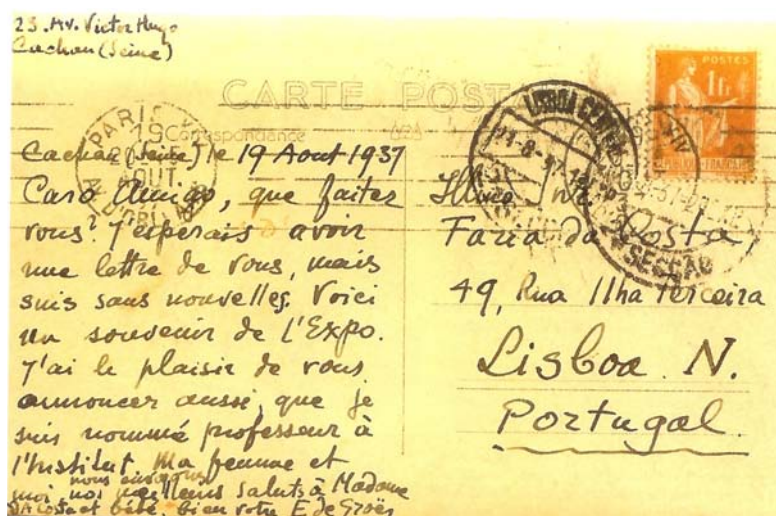 23. Av. Victor Hugo
Cachan (Seine)
CARTE POSTALE
Correspondance
PARIS
19
AOUT
LISBOA CENTRAL
SECÇÃO
POSTES
1f
REPUBLIQUE FRANÇAISE
Cachan (Seine) le 19 Aout 1937
Caro Amigo, que faites
vous? J'esperais avoir
une lettre de vous, mais
suis sans nouvelles. Voici
un souvenir de l'Expo.
J'ai le plaisir de vous
annoncer aussi, que je
suis nommé professeur à
l'Institut. Ma femme et
moi nous envoyons nos meilleurs saluts à Madame
Da Costa et bébé, bien votre E de Groër
Illmo Sr.
Faria da Costa,
49, Rua Ilha Terceira
Lisboa N.
Portugal.